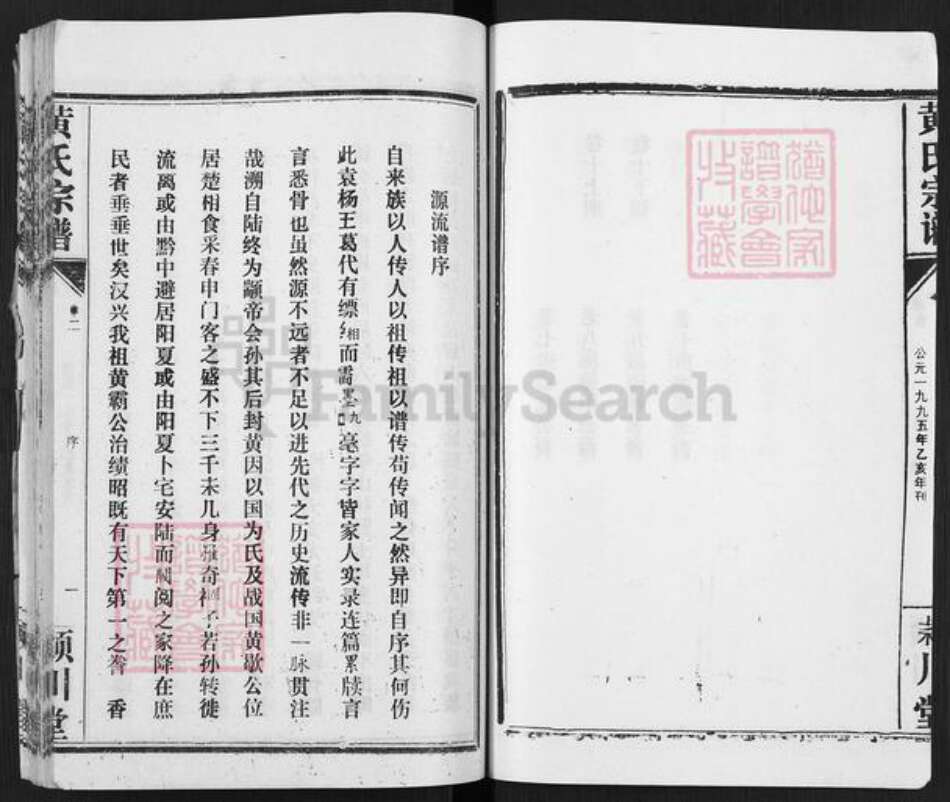 黄氏宗谱
公元一九九五年乙亥年刊
川堂
源流谱序
自来族以人传人以祖传祖以谱传苟传闻之然异即自序其何伤
此袁杨王葛代有缥缃而霱墨九毫字字皆家人实录连篇累牍言
言悉骨也虽然源不远者不足以进先代之历史流传非一脉贯注
哉溯自陆终为颛帝会孙其后封黄因以国为氏及战国黄歇公位
居楚相食采春申门客之盛不下三千未几身罹奇祸子若孙转徙
流离或由黔中避居阳夏或由阳夏卜宅安陆而阀阅之家降在庶
民者垂垂世矣汉兴我祖黄霸公治绩昭既有天下第一之誊 香
黄氏宗谱
卷二
序
一
颍川堂
FamilySearch